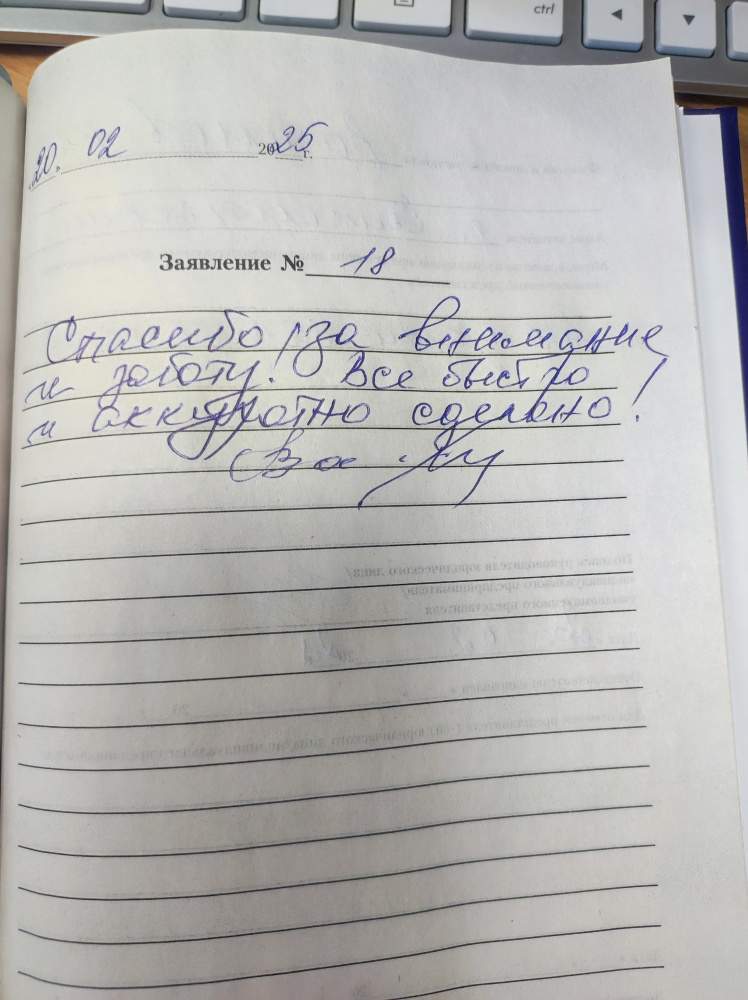 20. 02 2025 г.
Заявление № 18
Спасибо за внимание
и заботу! Все быстро
и аккуратно сделано!
ctrl